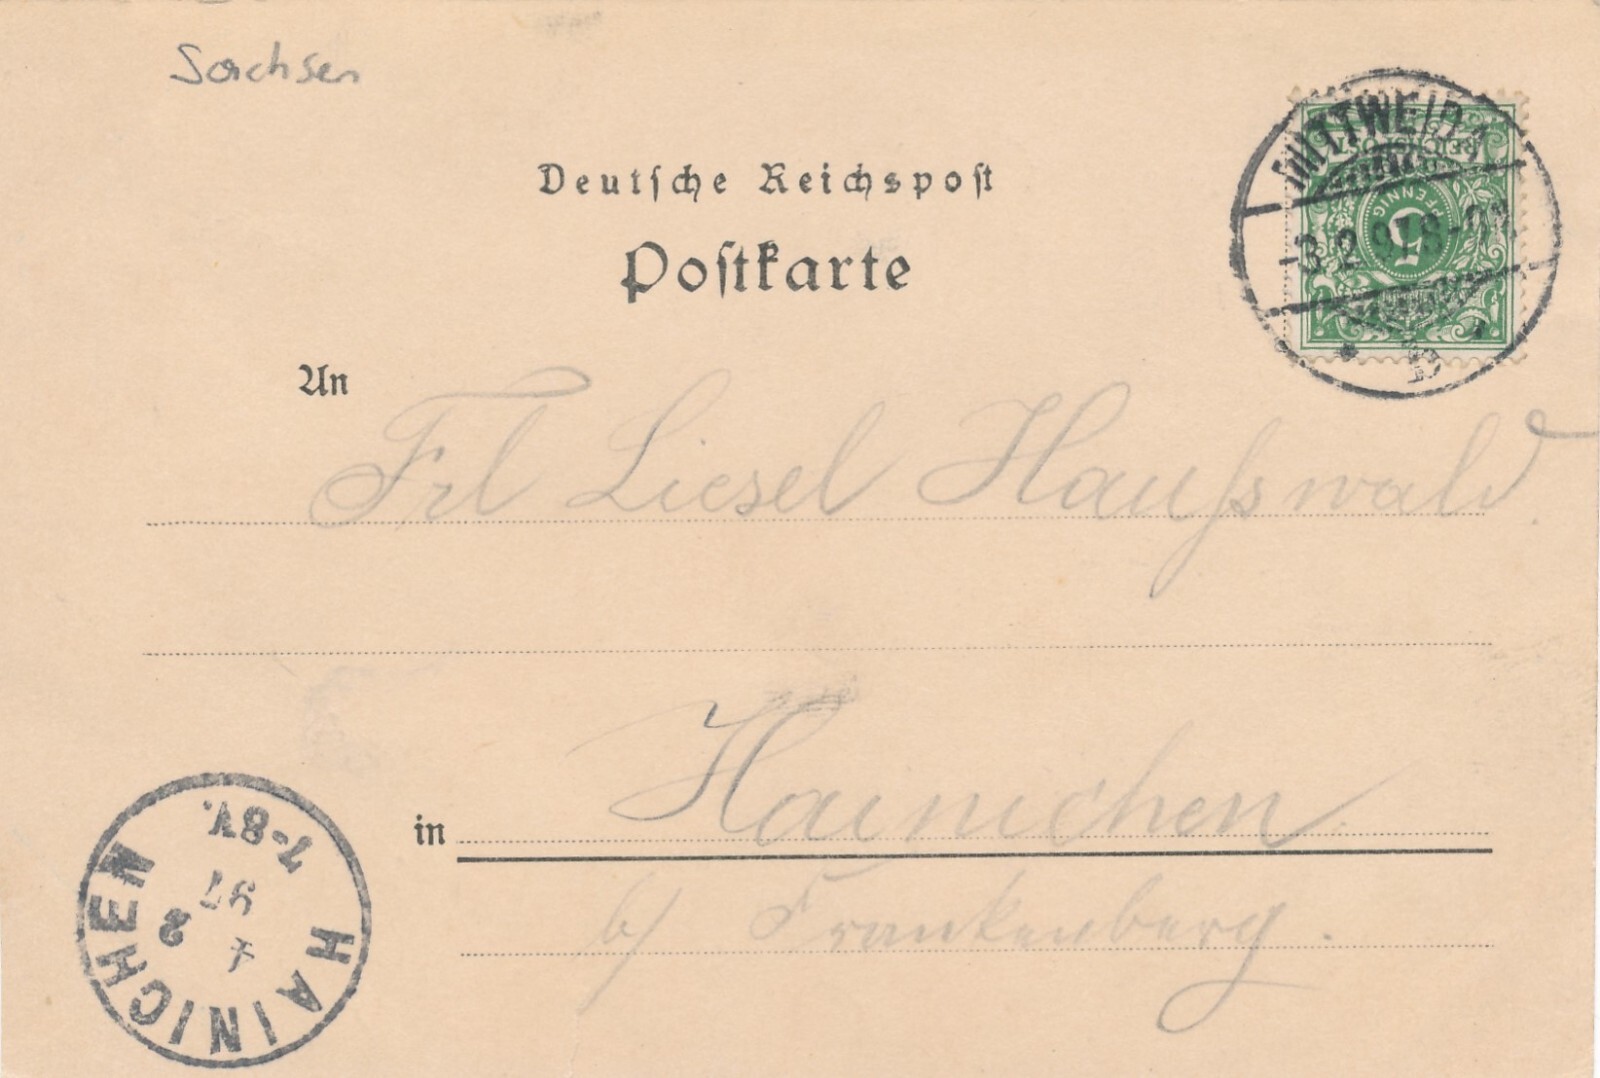 Sachsen
Deutſche Reichspoſt
Poſtkarte
MITTWEIDA
-3 2 97 8-9N
REICHSPOST
5
PFENNIG
An
Frl Liesel Haußwald.
in Hainichen
b/ Frankenberg.
HAINICHEN
4 2 97 7-8V.